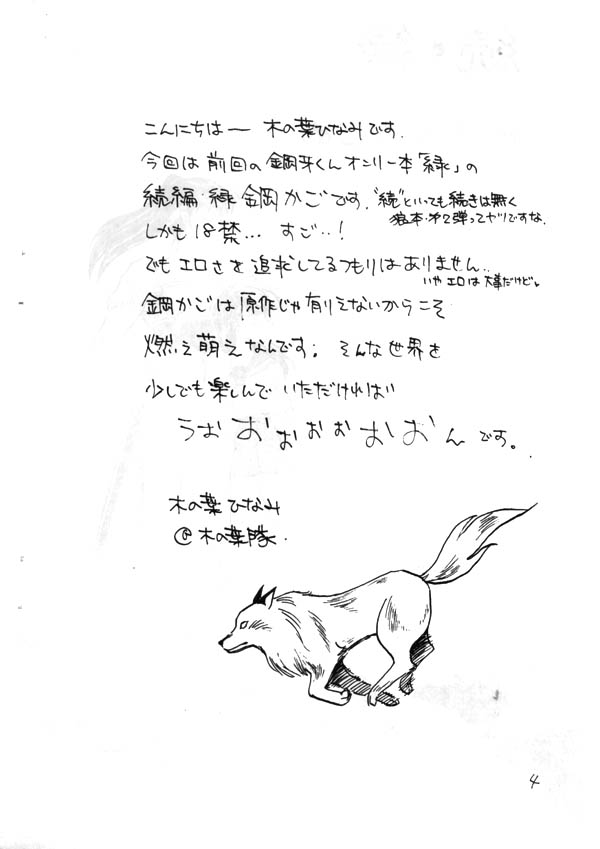 こんにちは― 木の葉ひなみです.
今回は前回の鋼牙くんオンリー本「縁」の
続編・縁 鋼かごです. "続"といっても続きは無く
狼本・第2弾ってヤツですな.
しかも18禁… すご…!
でもエロさを追求してるつもりはありません..
いやエロは大事だけど。
鋼かごは原作じゃ有りえないからこそ
燃え萌えなんです. そんな世界を
少しでも楽しんでいただければ
うおおおおおおおんです。
木の葉ひなみ
@木の葉隊.
4